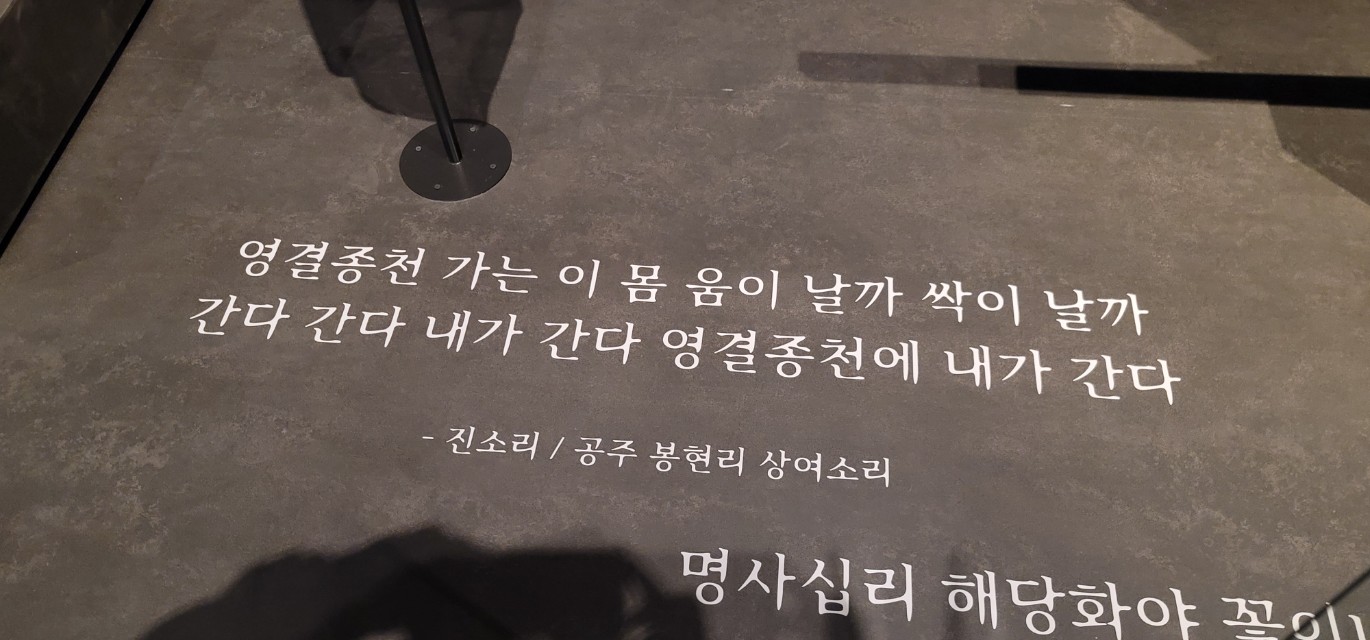 영결종천 가는 이 몸 움이 날까 싹이 날까
간다 간다 내가 간다 영결종천에 내가 간다
- 진소리 / 공주 봉현리 상여소리
명사십리 해당화야